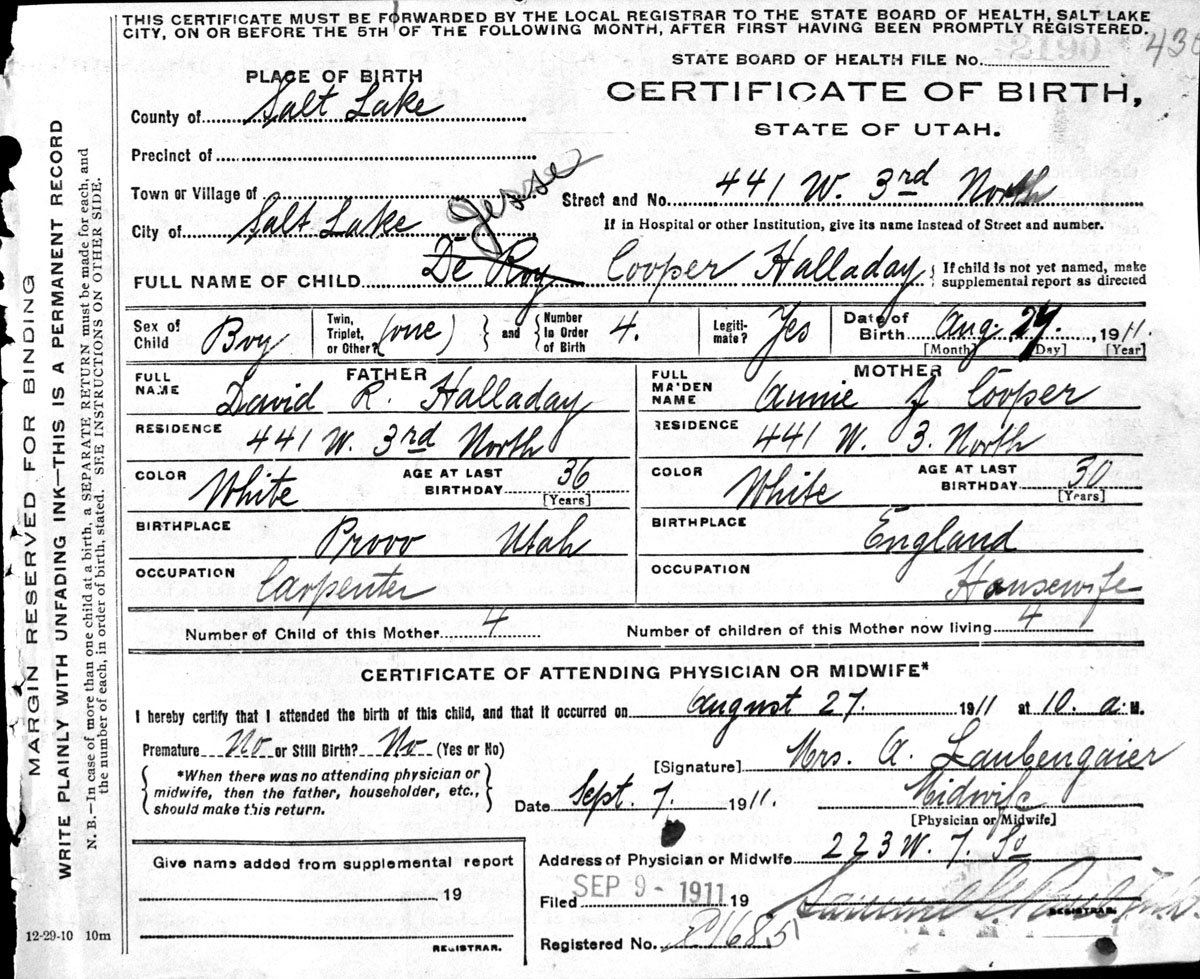 THIS CERTIFICATE MUST BE FORWARDED BY THE LOCAL REGISTRAR TO THE STATE BOARD OF HEALTH, SALT LAKE
CITY, ON OR BEFORE THE 5TH OF THE FOLLOWING MONTH, AFTER FIRST HAVING BEEN PROMPTLY REGISTERED.
STATE BOARD OF HEALTH FILE No.
PLACE OF BIRTH
CERTIFICATE OF BIRTH,
County of Salt Lake
STATE OF UTAH.
Precinct of
Town or Village of
Street and No. 441 W. 3rd North
City of Salt Lake
If in Hospital or other Institution, give its name instead of Street and number.
Jesse
FULL NAME OF CHILD De Roy Cooper Halladay { If child is not yet named, make
supplemental report as directed
Sex of Child Boy Twin, Triplet, or Other? (one) } and { Number in Order of Birth 4. Legitimate? Yes Date of Birth Aug. 27, 1911.
[Month] [Day] [Year]
FATHER
FULL NAME David R. Halladay
RESIDENCE 441 W. 3rd North
COLOR White AGE AT LAST BIRTHDAY 36
[Years]
BIRTHPLACE Provo Utah
OCCUPATION Carpenter
MOTHER
FULL MAIDEN NAME Annie J Cooper
RESIDENCE 441 W. 3. North
COLOR White AGE AT LAST BIRTHDAY 30
[Years]
BIRTHPLACE England
OCCUPATION Housewife
Number of Child of this Mother 4 Number of children of this Mother now living 4
CERTIFICATE OF ATTENDING PHYSICIAN OR MIDWIFE*
I hereby certify that I attended the birth of this child, and that it occurred on August 27. 1911 at 10. a. M.
Premature No or Still Birth? No (Yes or No)
[Signature] Mrs. A. Laubengaier
{ *When there was no attending physician or
midwife, then the father, householder, etc.,
should make this return. }
Date Sept. 7. 1911. Midwife
[Physician or Midwife]
Address of Physician or Midwife 223 W. 7. So
Give name added from supplemental report
19
REGISTRAR.
Filed SEP 9 - 1911 19
REGISTRAR.
Registered No.
12-29-10 10m
MARGIN RESERVED FOR BINDING
WRITE PLAINLY WITH UNFADING INK—THIS IS A PERMANENT RECORD
N. B.—In case of more than one child at a birth, a SEPARATE RETURN must be made for each, and
the number of each, in order of birth, stated. SEE INSTRUCTIONS ON OTHER SIDE.